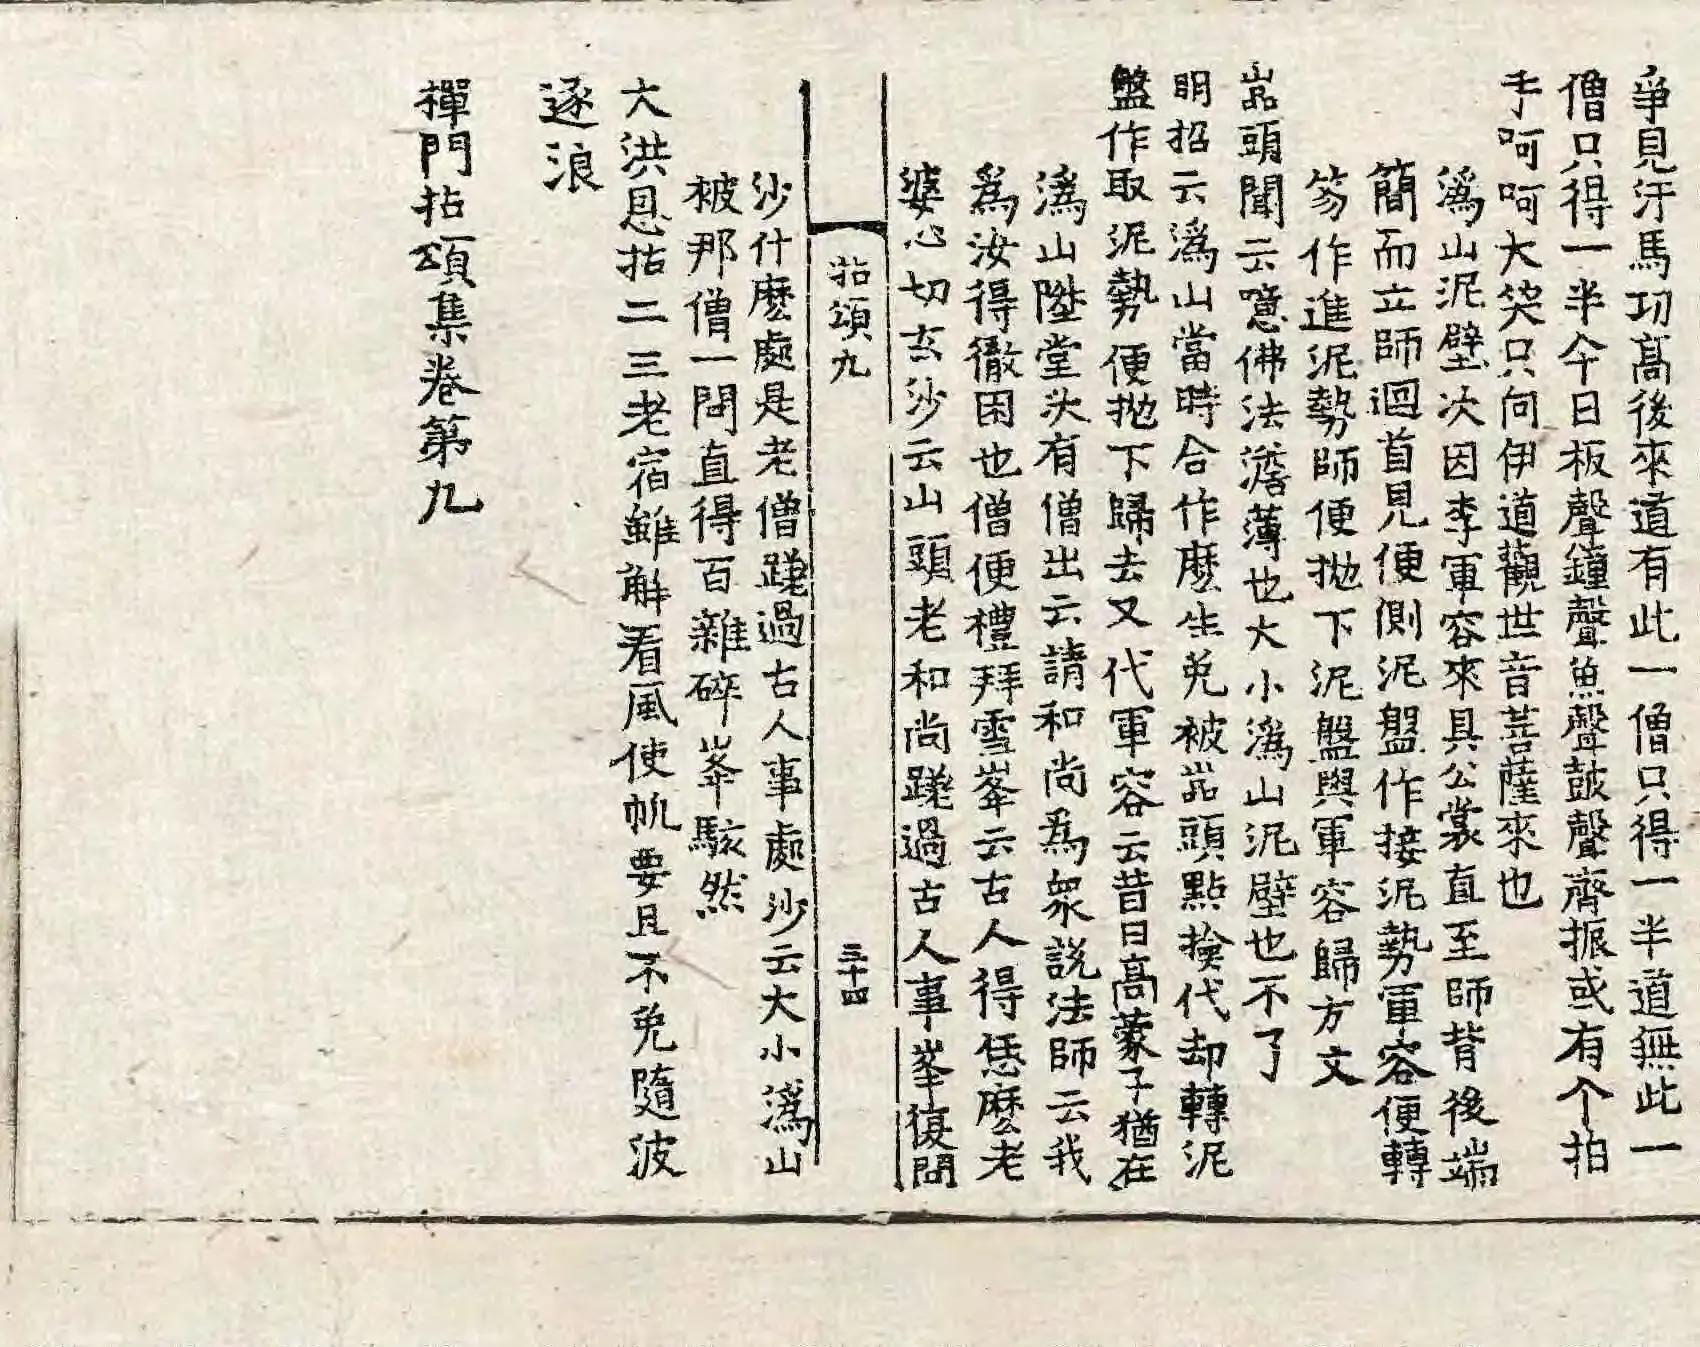 爭見汗馬功高後來道有此一僧只得一半道無此一
僧只得一半今日板聲鐘聲魚聲鼓聲齊振或有个拍
手呵呵大笑只向伊道觀世音菩薩來也
潙山泥壁次因李軍容來具公裳直至師背後端
簡而立師迴首見便側泥盤作接泥勢軍容便轉
笏作進泥勢師便拋下泥盤與軍容歸方文
嵓頭聞云噫佛法澹薄也大小潙山泥壁也不了
明招云潙山當時合作麽生免被嵓頭點撿代却轉泥
盤作取泥勢便拋下歸去又代軍容云昔日高蒙子猶在
潙山陞堂次有僧出云請和尚爲衆說法師云我
爲汝得徹困也僧便禮拜雪峯云古人得恁麽老
婆心切玄沙云山頭老和尚蹉過古人事峯復問
拈頌九
三十四
沙什麽處是老僧蹉過古人事處沙云大小潙山
被那僧一問直得百雜碎峯駭然
大洪恩拈二三老宿雖解看風使帆要且不免隨波
逐浪
禪門拈頌集卷第九